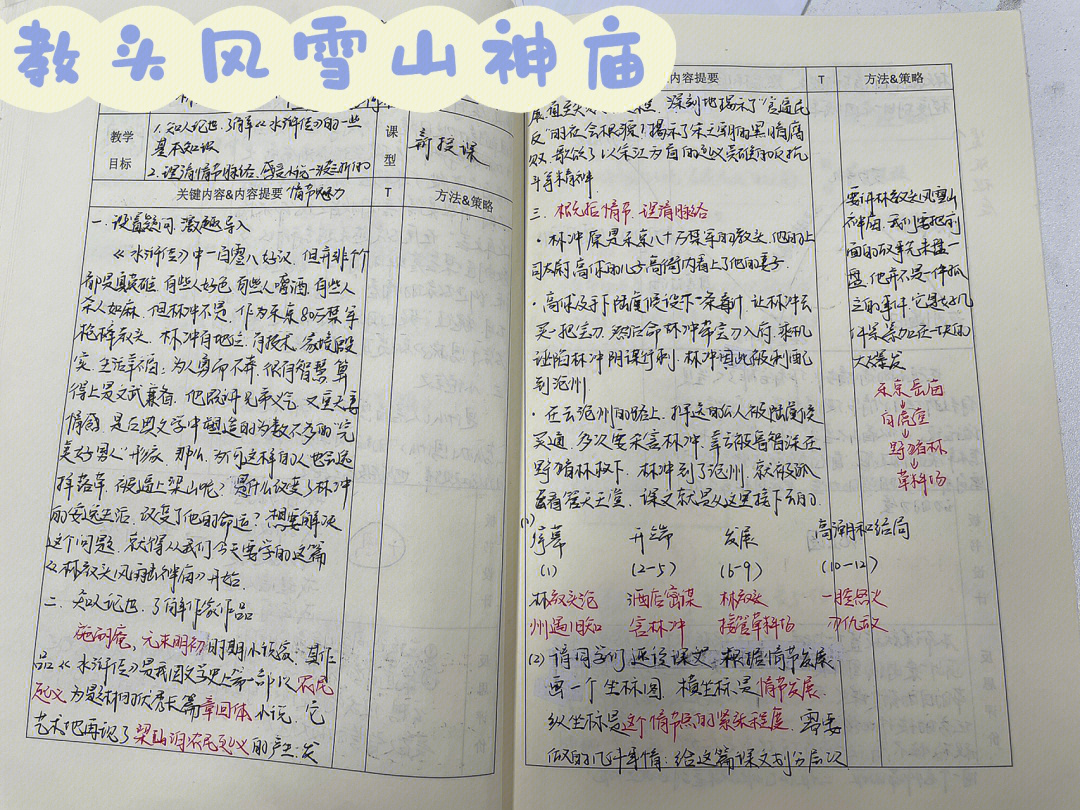 教头风雪山神庙
教学
目标
1.知人论世,了解《水浒传》的一些
基本知识
2.理清情节脉络,感受小说一波三折的
情节魅力
课
型
新授课
关键内容&内容提要
T
方法&策略
一、设置疑问,激趣导入
《水浒传》中一百零八好汉,但并非个个
都是英雄,有些人好色,有些人嗜酒,有些人
杀人如麻,但林冲不是,作为东京80万禁军
枪棒教头,林冲有地位,有技术,家境殷
实,生活幸福;为人勇而不莽,很有智慧,算
得上是文武兼备,他既讲兄弟义气,又重夫妻
情感,是古典文学中塑造的为数不多的“完
美好男人”形象。那么,为何这样的人也会选
择落草,被逼上梁山呢?是什么改变了林冲
的安逸生活,改变了他的命运?想要解决
这个问题,就得从我们今天要学的这篇
《林教头风雪山神庙》开始。
二、知人论世,了解作家作品
施耐庵,元末明初时期小说家,其作
品《水浒传》是我国文学史上第一部以农民
起义为题材的优秀长篇章回体小说。它
艺术地再现了梁山泊农民起义的产生、发
内容提要
T
方法&策略
展直至失败的过程,深刻地揭示了“官逼民
反”的社会根源,揭示了宋王朝的黑暗腐
败,歌颂了以宋江为首的起义英雄的反抗
斗争精神。
三、概括情节,理清脉络
·林冲原是东京八十万禁军的教头,他的上
司太尉高俅的儿子高衙内看上了他的妻子。
·高俅及手下陆虞候设下一条毒计,让林冲去
买一把宝刀,然后命林冲带宝刀入府,乘机
诬陷林冲阴谋行刺,林冲因此被刺配
到沧州。
·在去沧州的路上,押送的公人被陆虞候
买通,多次要杀害林冲,幸亏被鲁智深在
野猪林救下,林冲到了沧州,被分派
去看管天王堂,课文就是从这里接下去的。
(1)
序幕 开端 发展 高潮和结局
(1) (2-5) (6-9) (10-12)
林教头沧 酒店密谋 林教头 一腔怒火
州遇旧知 害林冲 接管草料场 刃仇敌
(2) 请同学们速读课文,根据情节发展,
画一个坐标图,横坐标是情节发展,
纵坐标是这个情节点的紧张程度,需要
做的几件事情:给这篇课文划分层次
要讲林教头风雪山
神庙,我们需把前
面的故事先来盘一
盘,他并不是一件孤
立的事件,它是好几
件案叠加在一块的
大爆发
东京岳庙
↓
白虎堂
↓
野猪林
↓
草料场